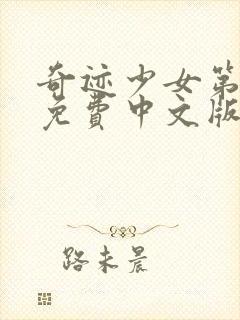 奇迹少女第
免費中文版
路未晨